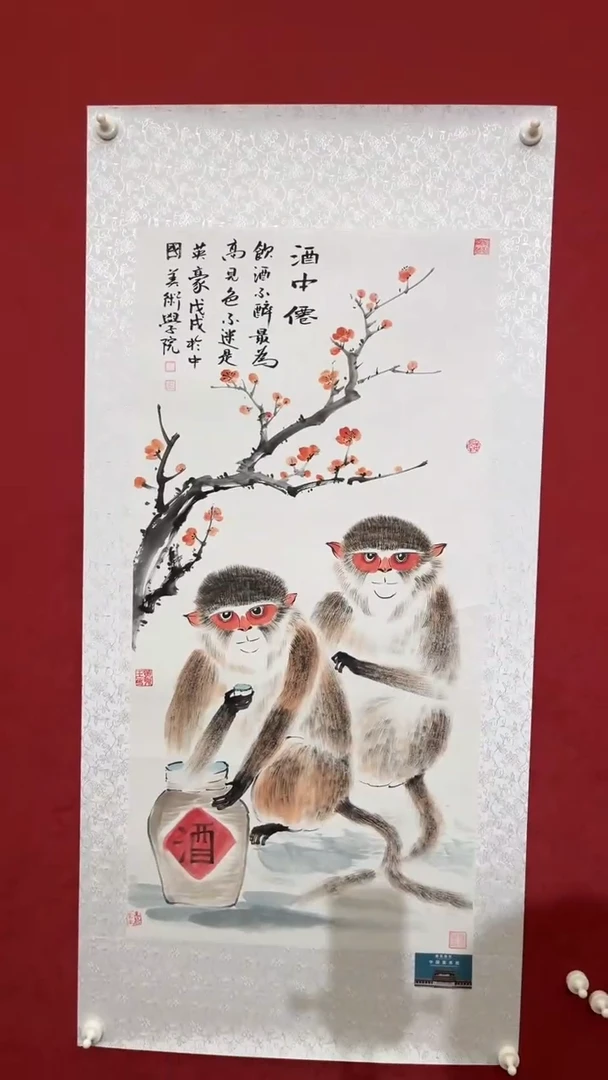 酒中僊
飲酒不醉最為
高見色不迷是
英豪戊戌於中
國美術學院
酒